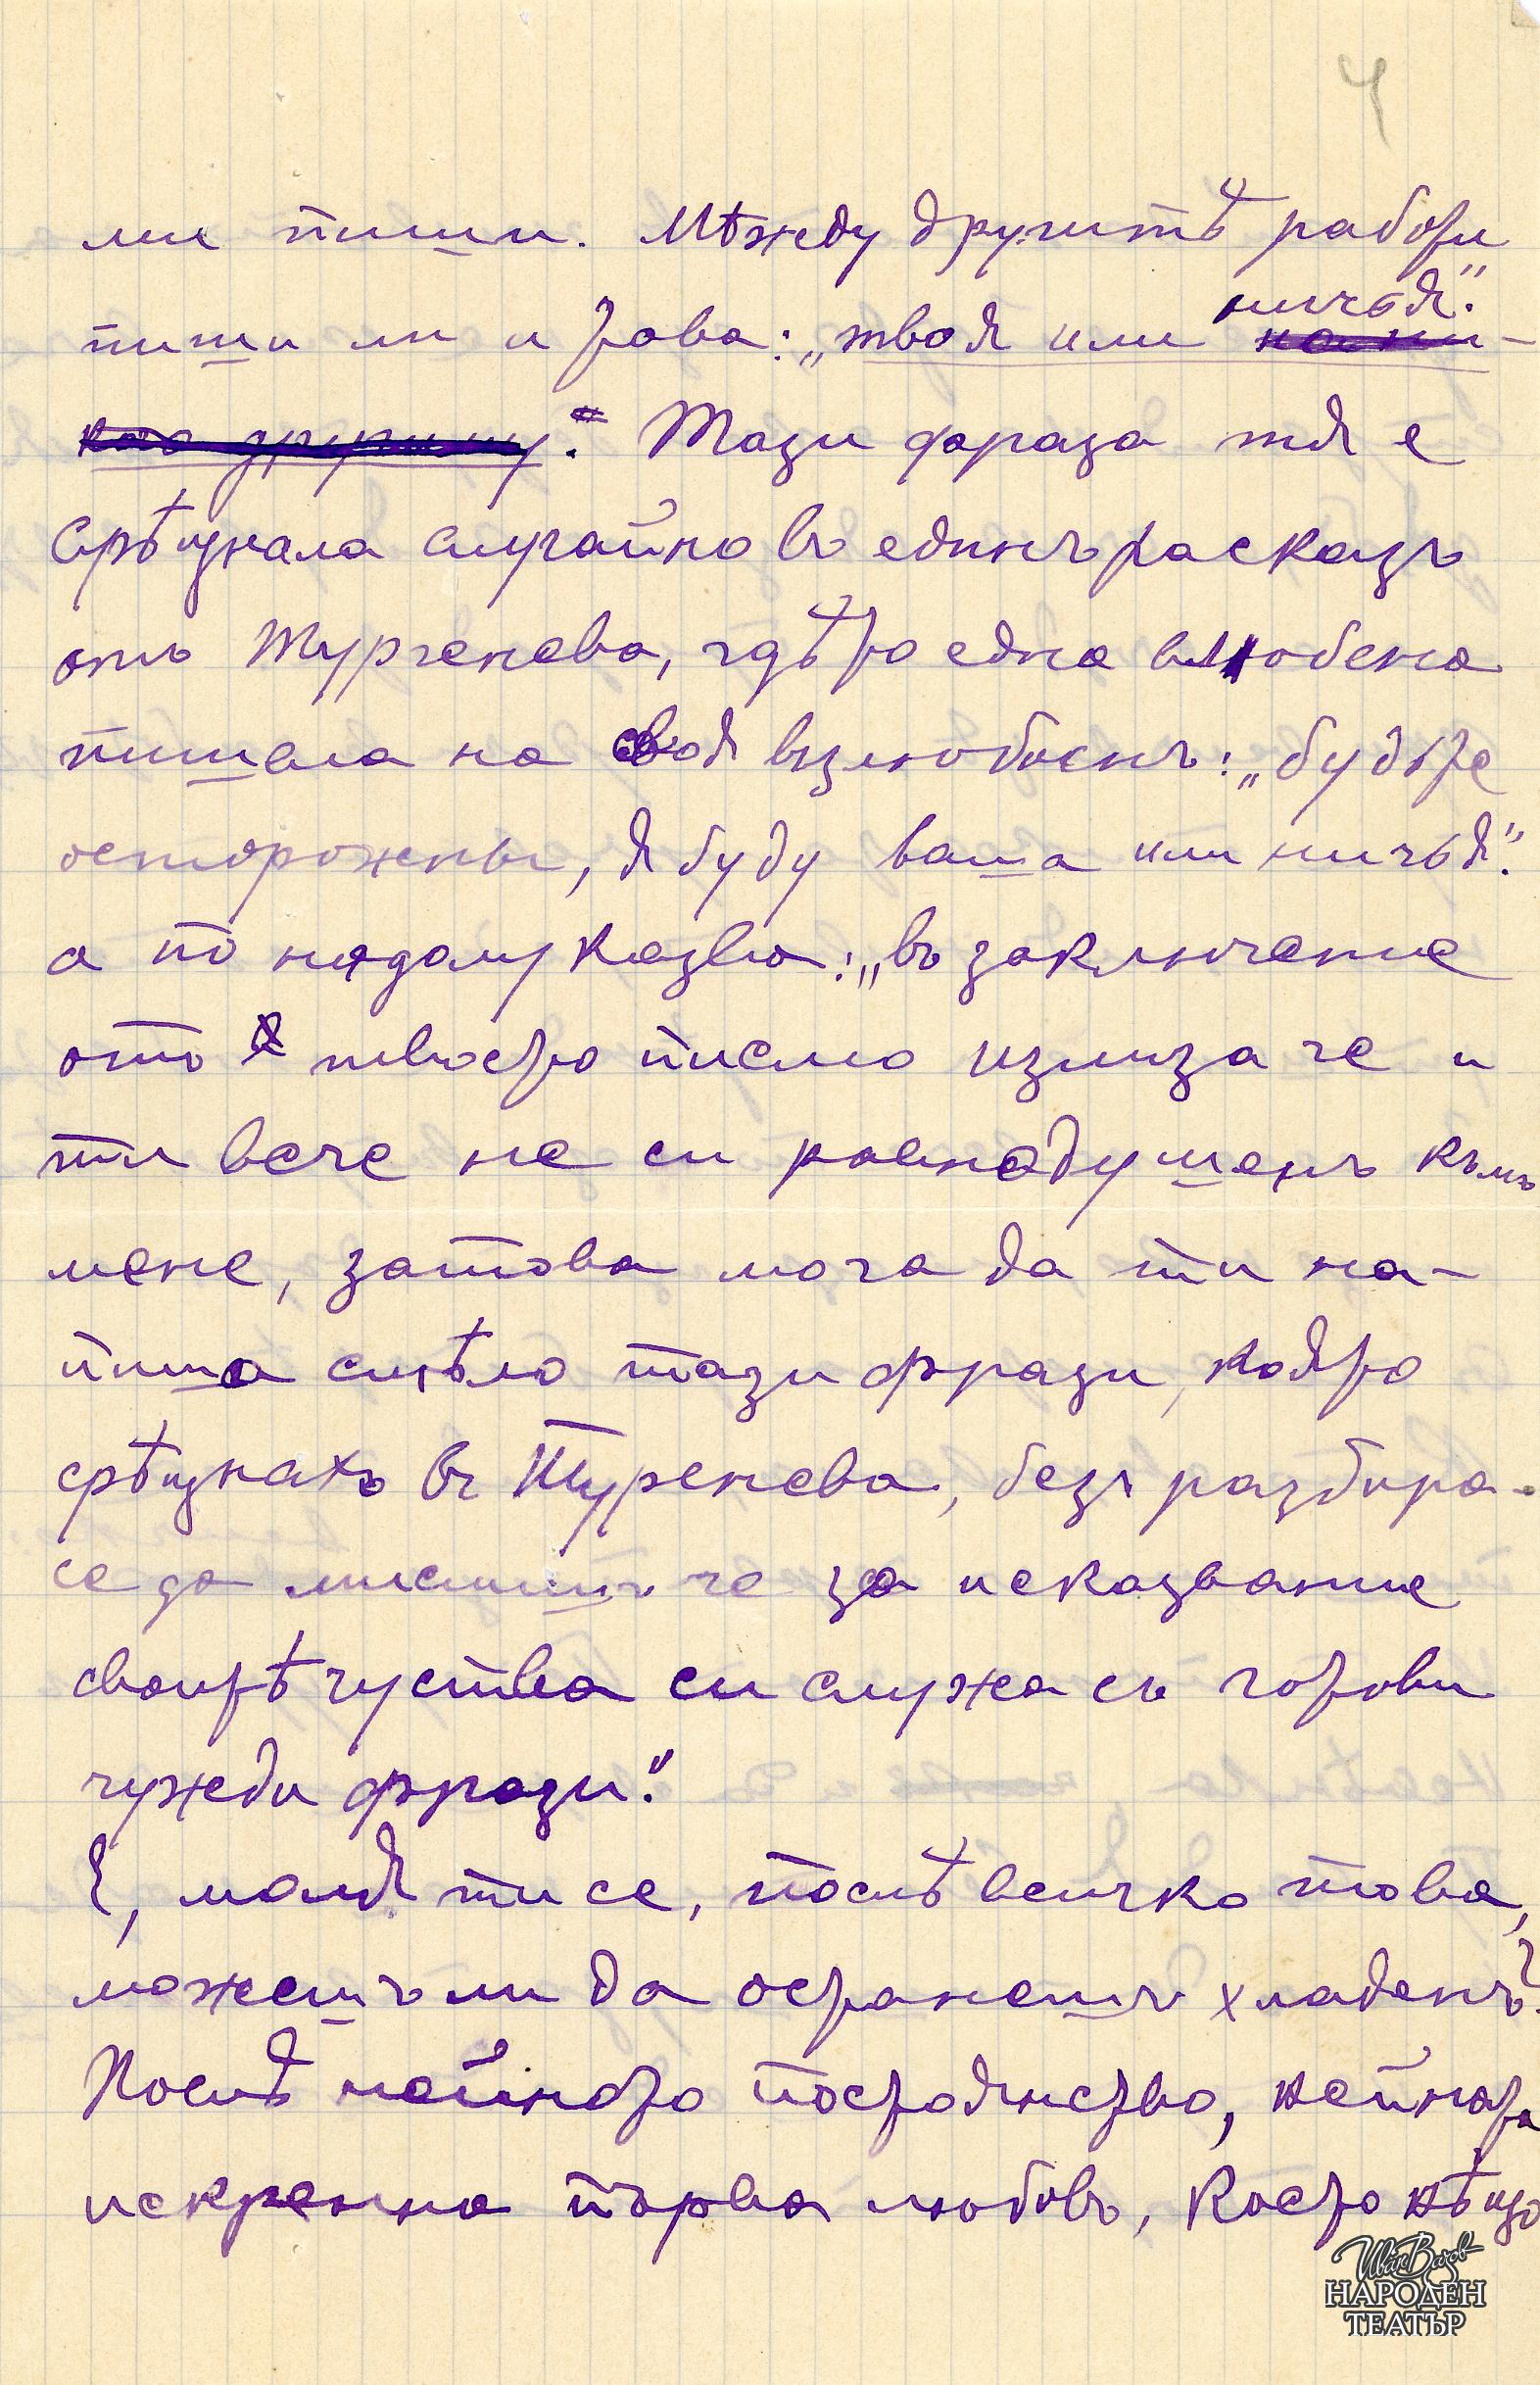 4
ми пиши. Мѣжду другитѣ работи
пиши ми и това: „твоя или ничья“.
Тази фраза тя е
срѣщнала случайно въ единъ расказъ
отъ Тургенева, гдѣто една влюбена
пишела на своя възлюбленъ: „будьте
осторожны, я буду ваша или ничья“.
а по надолу казва: „въ заключение
отъ твоето писмо излиза че и
ти вече не си равнодушенъ къмъ
мене, затова мога да ти на-
пиша смѣло тази фрази, която
срѣщнахъ въ Тургенева, безъ разбира-
се да мислишъ че за исказвание
своитѣ чуства си служа съ готови
чужди фрази“.
, моля ти се, послѣ всичко това,
можешъ ли да останешъ хладенъ?
Послѣ нейното постоянство, нейната
искренна първа любовь, което нѣщо
Иван Вазов
НАРОДЕН
ТЕАТЪР